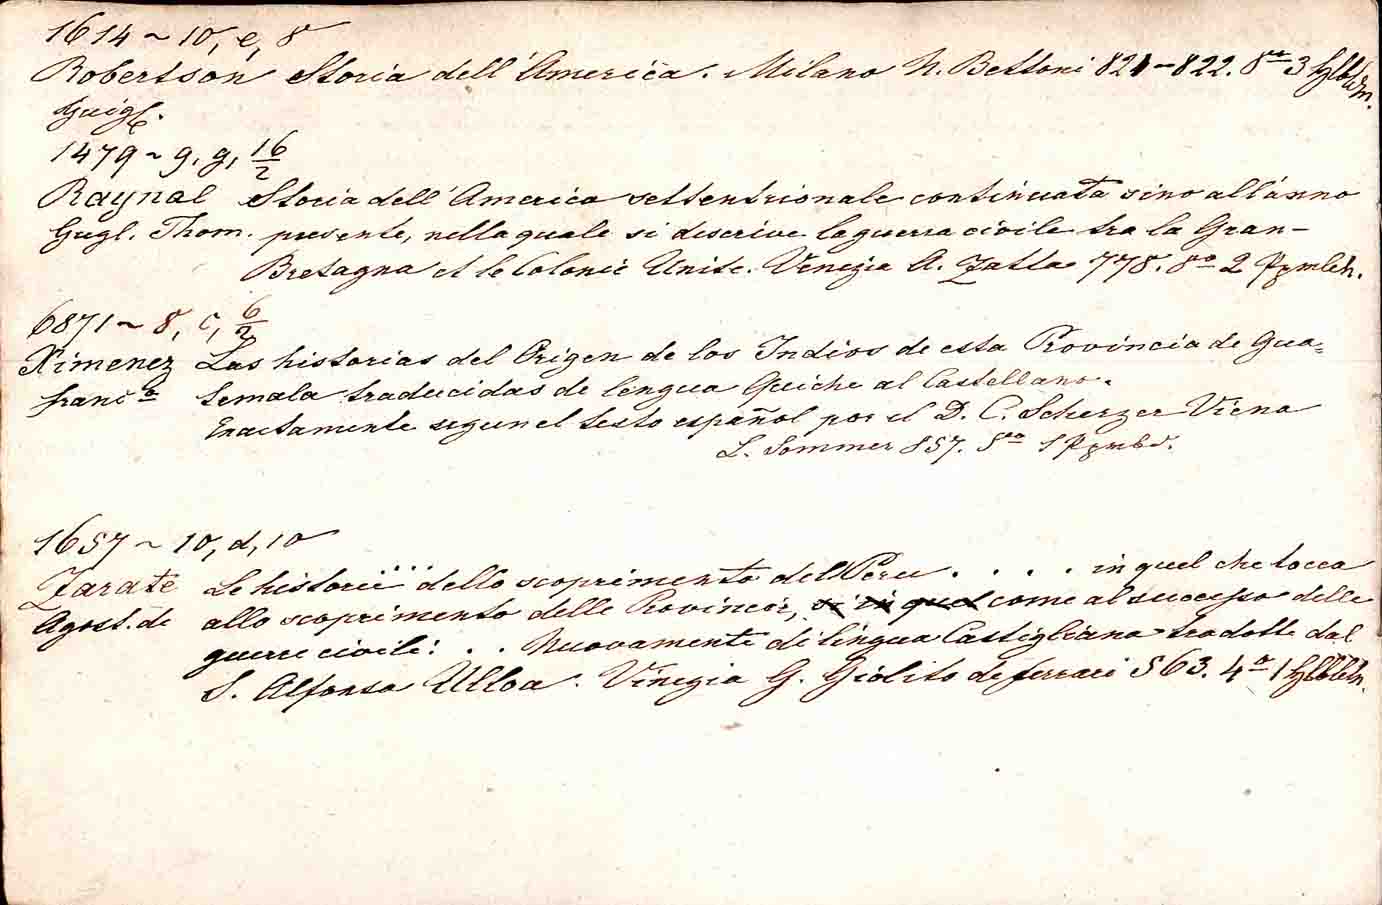 1614 ~ 10, e, 8
Robertson Storia dell'America. Milano N. Bettoni 821-822. 8vo 3
Guigl.
1479 ~ 9, g, 16/2
Raynal Storia dell'America settentrionale continuata sino all'anno
Gugl. Thom. presente, nella quale si descrive la guerra civile tra la Gran-
Bretagna et le Colonie Unite. Venezia A. Zatta 778. 8o 2 Ppmbch.
6871 ~ 8, c, 6/2
Ximenez Las historias del Origen de los Indios de esta Provincia de Gua=
franco temala traducidas de lengua Quiche al Castellano.
Exactamente segun el testo español por el D. C. Scherzer Viena
L. Sommer 857. 8vo 1 Ppmbd.
1657 ~ 10, d, 10
Zarate Le historie ... dello scoprimento del Peru . . . . in quel che tocca
Agost. de allo scoprimento delle Provincie, si in quel come al successo delle
guerre civili: . . Nuovamente di lingua Castigliana tradotte dal
S. Alfonso Ulloa. Vinegia G. Giolito de ferrari 563. 4o 1